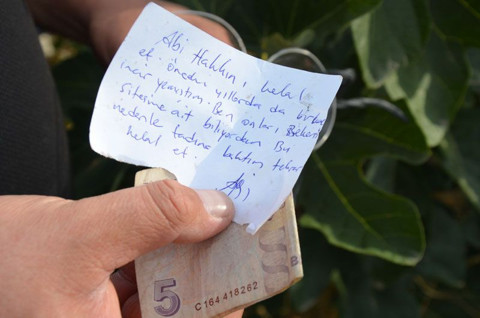 Abi Hakkın, helal
et. Önceden yıllarda da birkaç
incir yemiştim. Ben onları Belediye
sitesine ait biliyordum Bu
nedenle tadına baktım tekrar
helal et.
5
C164418262